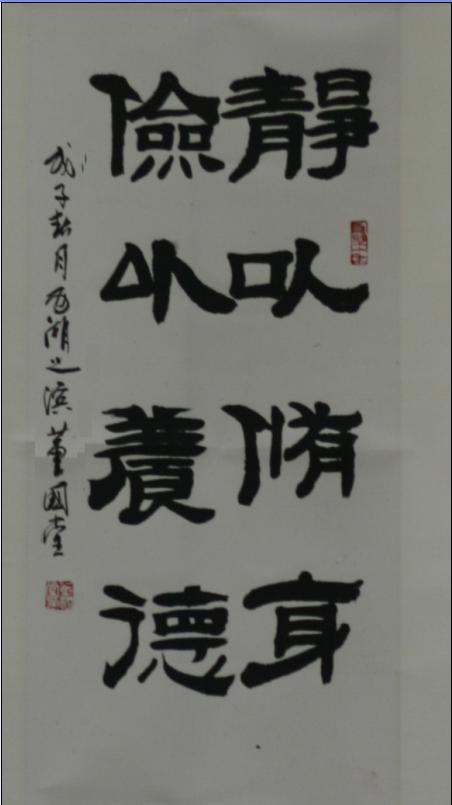 靜以脩身
儉以養德
戊子秋月西湖之滨董國堂